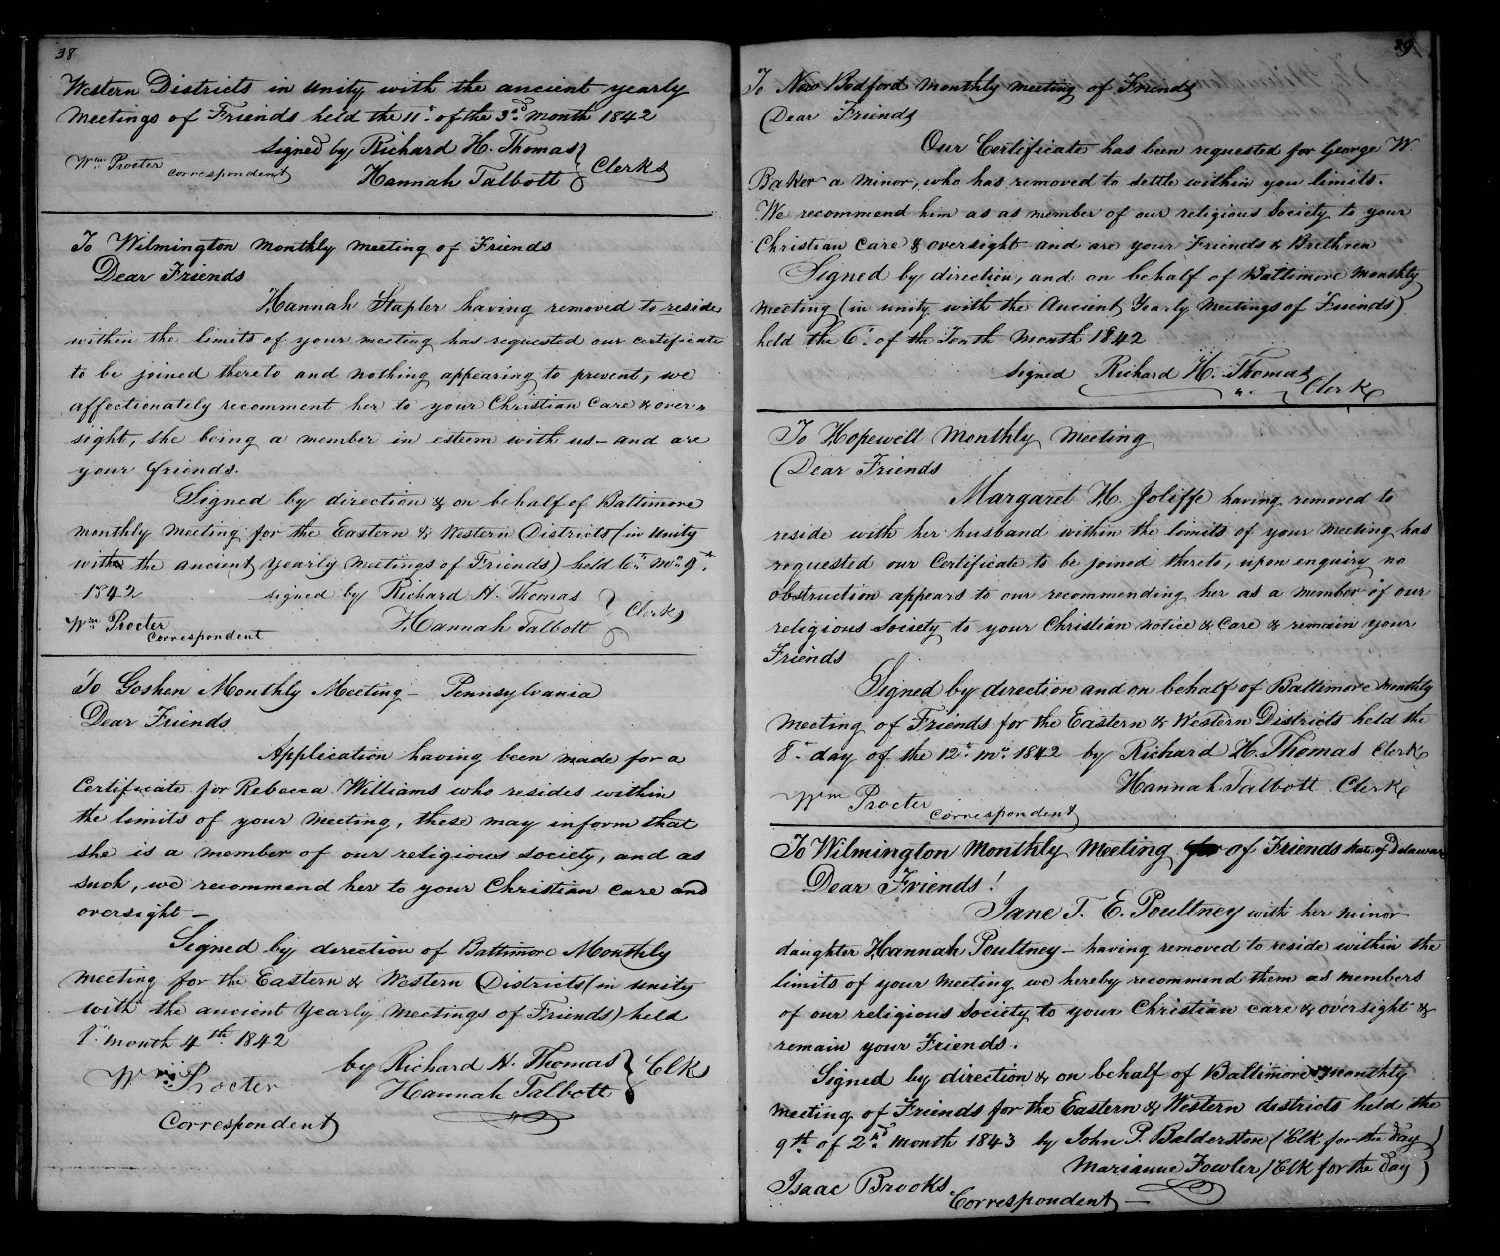 38
Western Districts in unity with the ancient yearly
meetings of Friends held the 11th of the 3rd month 1842
signed by Richard H. Thomas
Hannah Talbott } Clerks
Wm Procter
correspondent
To Wilmington Monthly Meeting of Friends
Dear Friends
Hannah Stapler having removed to reside
within the limits of your meeting has requested our certificate
to be joined thereto and nothing appearing to prevent, we
affectionately recomment her to your Christian care & over=
sight, she being a member in esteem with us – and are
your friends.
Signed by direction & on behalf of Baltimore
monthly meeting for the Eastern & Western Districts (in unity
with the ancient yearly meetings of Friends) held 6th mo 9th
1842 signed by Richard H. Thomas
Hannah Talbott } Clerks
Wm Procter
correspondent
To Goshen Monthly Meeting – Pennsylvania
Dear Friends
Application having been made for a
Certificate for Rebecca Williams who resides within
the limits of your meeting, these may inform that
she is a member of our religious society, and as
such, we recommend her to your Christian care and
oversight –
Signed by direction of Baltimore Monthly
meeting for the Eastern & Western Districts (in unity
with the ancient yearly meetings of Friends) held
month 4th 1842
by Richard H. Thomas
Hannah Talbott } Clks
Wm Procter
Correspondent
39
To New Bedford monthly meeting of Friends
Dear Friends
Our Certificate has been requested for George W
Baker a minor, who has removed to settle within you limits.
We recommend him as as member of our religious Society to your
Christian care & oversight and are your Friends & Brethren
Signed by direction, and on behalf of Baltimore monthly
meeting (in unity with the Ancient Yearly Meetings of Friends)
held the 6th of the Tenth Month 1842
signed Richard H. Thomas
Clerk
To Hopewell Monthly Meeting
Dear Friends
Margaret H. Joliffe having removed to
reside with her husband within the limits of your meeting has
requested our Certificate to be joined thereto, upon enquiry no
obstruction appears to our recommending her as a member of our
religious Society to your Christian notice & care & remain your
Friends
Signed by direction and on behalf of Baltimore Monthly
meeting of Friends for the Eastern & Western Districts held the
8th day of the 12th mo 1842 by Richard H. Thomas Clerk
Hannah Talbott Clerk
Wm Procter
correspondent
To Wilmington Monthly Meeting of Friends State of Delaware
Dear Friends!
Jane T. E. Poultney with her minor
daughter Hannah Poultney – having removed to reside within the
limits of your meeting we hereby recommend them as members
of our religious Society to your Christian care & oversight &
remain your Friends.
Signed by direction & on behalf of Baltimore Monthly
meeting of Friends for the Eastern & Western districts held the
9th of 2nd month 1843 by John P. Balderston (Clk for the day
Marianne Fowler (Clk for the day
Isaac Brooks
Correspondent –